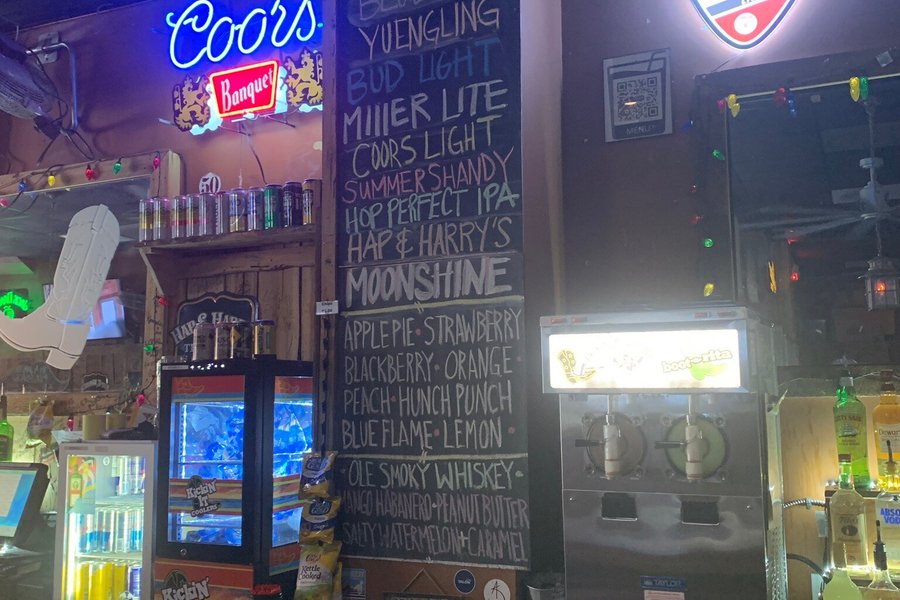 Coors
Banquet
YUENGLING
BUD LIGHT
MILLER LITE
COORS LIGHT
SUMMERSHANDY
HOP PERFECT IPA
HAP & HARRY'S
MOONSHINE
APPLE PIE • STRAWBERRY
BLACKBERRY • ORANGE
PEACH • HUNCH PUNCH
BLUE FLAME • LEMON
OLE SMOKY WHISKEY -
MANGO HABANERO • PEANUT BUTTER
SALTY WATERMELON • CARAMEL
MENU
HAP & HARRY'S
boot•o•rita
KICKIN'
COOLERS
KICKIN'
Kettle
Cooked
TAYLOR
ABSOLUT
VODKA